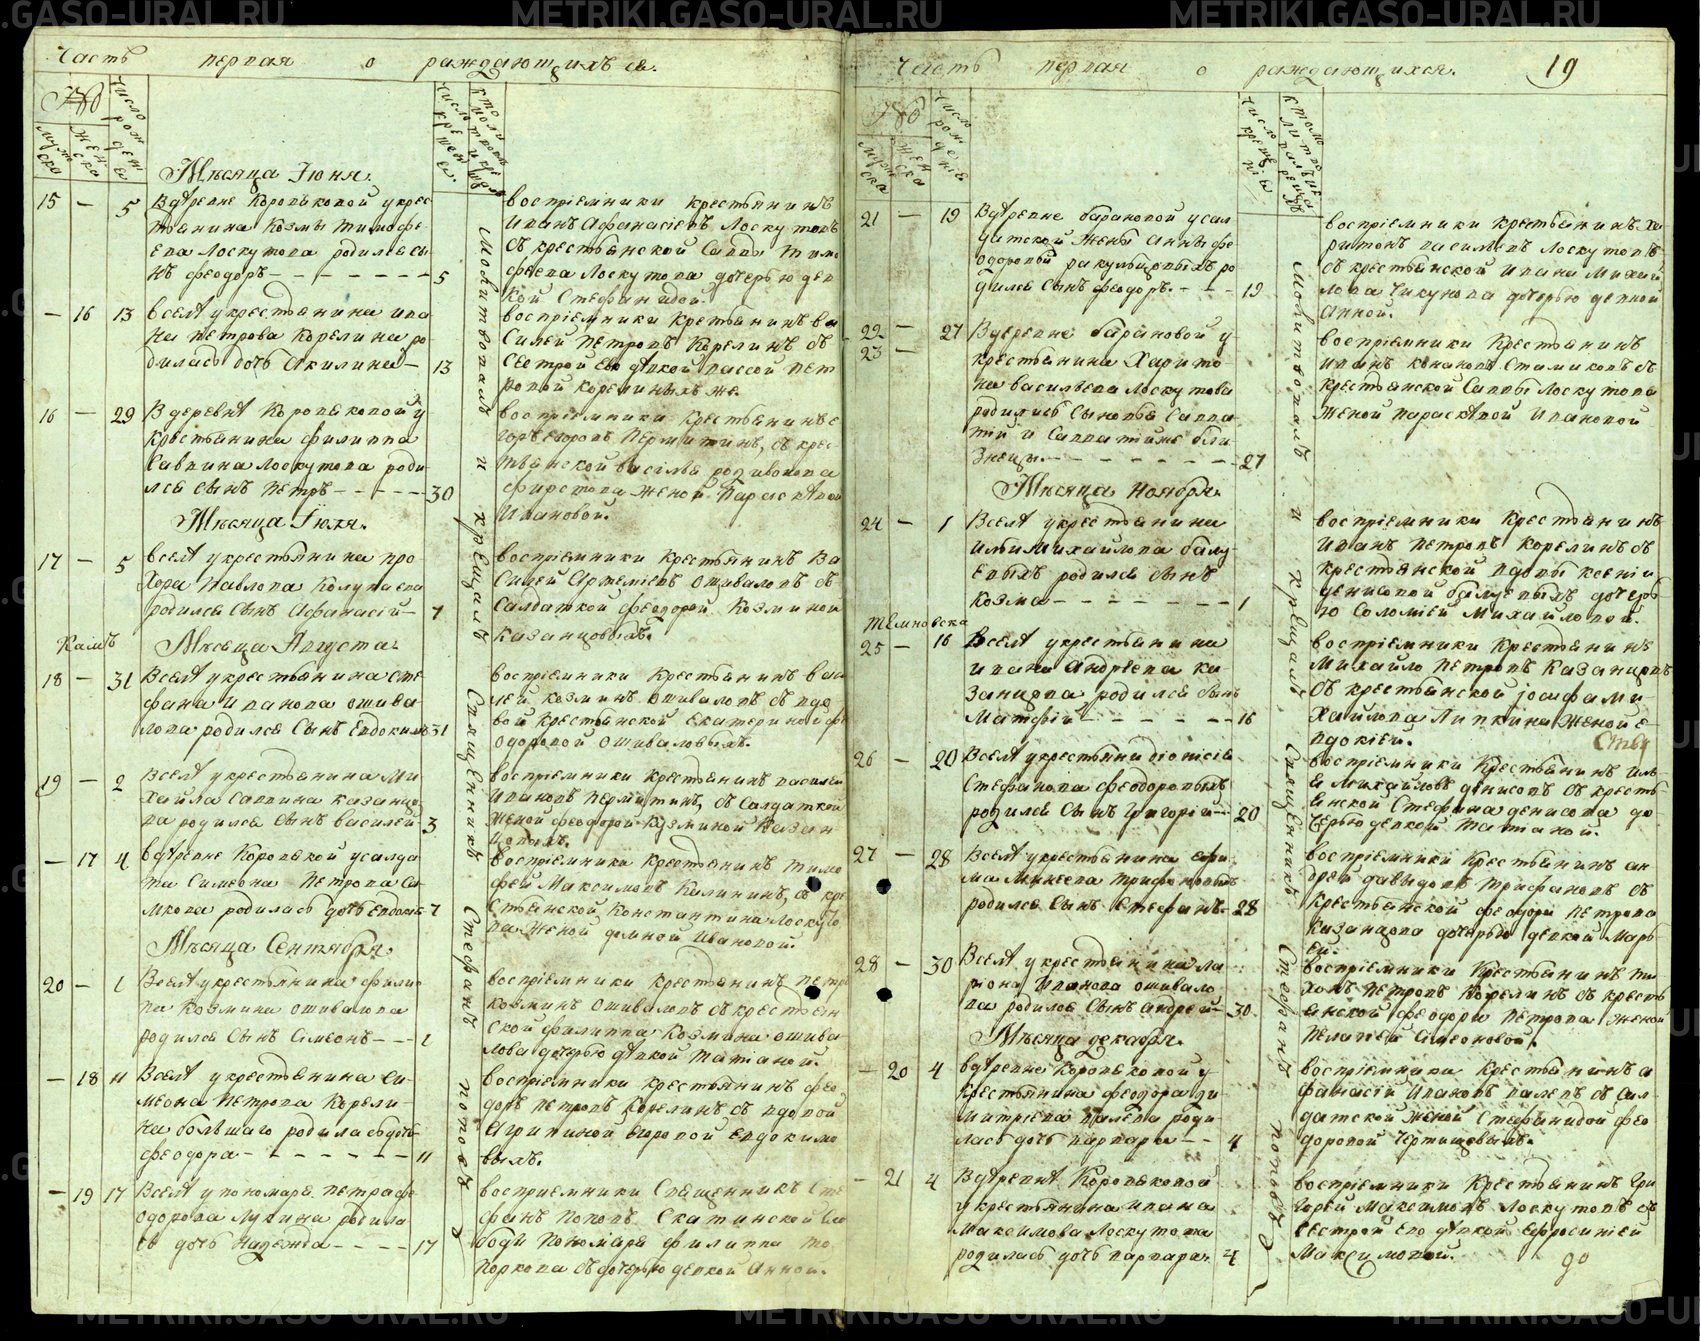 Часть первая о раждающихъся.
Число рожденiя
мужеска
женска
Мѣсяца Iюня.
15 — 5 Вдѣревне Коровьковой укрес
тьянина Козмы Тимофе
ева Лоскутова родился сы
нъ феодоръ — 5
воспрiемники крестьянинъ
Иванъ Афанасiевъ Лоскутовъ
съ крестьянской Саввы Тимо
феева Лоскутова дочерью дев
кой Стефанидой.
— 16 13 Вселѣ укрестьянина ива
на петрова Корелина ро
дилась дочь Акилина — 13
воспрiемники кретьянинъ ва
силей петровъ Корелинъ съ
сестрой его дѣвкой вассой пет
ровой корелиныхъ же.
16 — 29 Вдеревнѣ Коровьковой у
крестьянина филиппа
Саввина лоскутова роди
лся сынъ петръ — 30
воспрiемники крестьянинъ е
горъ егоровъ пермитинъ, съ крес
тьянской василья родивонова
фирстова женой Параскѣвой
Ивановой.
Мѣсяца Iюля.
17 — 5 вселѣ укрестьянина про
хора Павлова Колупаева
родился сынъ Афанасiй — 7
воспрiемники крестьянинъ Ва
силей Артемiевъ Ошиваловъ съ
Салдаткой феодорой Козминой
казанцовыхъ.
Мѣсяца Августа.
18 — 31 Вселѣ укрестьянина сте
фана Иванова ошива
лова родился сынъ Евдокимъ 31
воспрiемники крестьянинъ васи
лей козминъ Ошиваловъ съ вдо
вой крестьянской екатериной фе
одоровой ошиваловыхъ.
19 — 2 Вселѣ укрестьянина Ми
хайла Саввина казанцо
ва родился сынъ василей — 3
воспрiемники крестьянинъ василей
Ивановъ пермитинъ, съ Салдаткой
женой феодорой Кузминой Казан
цовыхъ.
— 17 4 вдѣревне Коровьковой усалда
та Симеона петрова Си
мкова родилась дочь евдокiя 7
воспрiемники крестьянинъ тимо
фей Максимовъ Калининъ, съ кре
стьянской Константина Лоскуто
ва женой домной Ивановой.
Мѣсяца Сентября
20 — 1 Вселѣ укрестьянина филип
па Козмина ошивалова
родился сынъ симеонъ — 2
воспрiемники крестьянинъ петръ
козминъ ошиваловъ съ крестьян
ской филиппа Козмина ошива
лова дочерью дѣвкой татаной.
— 18 11 Вселѣ укрестьянина Си
меона Петрова Корели
на большаго родилась дочь
феодора — 11
воспрiемники крестьянинъ фео
доръ петровъ Корелинъ съ вдовой
Агрипиной егоровой евдокимо
выхъ.
— 19 17 Вселѣ упономаря петра фе
одорова Лукина родила
сь дочь Надежда — 17
восприемники Священникъ Сте
фанъ Поповъ Скатинской сло
боды Пономаря филиппа то
поркова съ дочерью девкой Анной.
Молитвовалъ и крещалъ Священникъ Стефанъ поповъ
Часть первая о раждающихся. 19
Число рожденiя
мужеска
женска
21 — 19 Вдѣревне барановой усал
датской жены Анны фе
одоровой ракульцовыхъ ро
дился сынъ феодоръ. — 19
воспрiемники крестьянинъ Ха
ритонъ васильевъ лоскутовъ
съ крестьянской ивана Михай
лова Чикунова дочерью девкой
Анной.
22 — 27 Вдеревне барановой у
23 — крестьянина Харито
на васильева лоскутова
родились сыновья Савва
тiй и Савватiйже бли
знецы. — 27
воспрiемники крестьянинъ
иванъ Стамиковъ съ
крестьянской Саввы Лоскутова
женой параскѣвой ивановой
Мѣсяца Ноября.
24 — 1 Вселѣ укрестьянина
ильи Михайлова балу
евыхъ родился сынъ
козма — 1
воспрiемники крестьянинъ
иванъ петровъ Корелинъ съ
крестьянской вдовы ксенiи
денисовой балуевыхъ дочерь
ю Соломiей Михайловой.
темновска
25 — 16 Вселѣ укрестьянина
ивана Андреева ка
занцова родился сынъ
Матфiй — 16
воспрiемники Крестьянинъ
Михайло петровъ казанцовъ
съ крестьянской iоасафа Ми
хайлова Липкина женой е
вдокiей.
26 — 20 Вселѣ укрестьяни дiонисiя
стефанова феодоровыхъ
родился сынъ григорiй — 20
воспрiемники Крестьянинъ иль
я Михайловъ денисовъ съ кресть
янской Стефана денисова до
черью девкой татаной.
27 — 28 Вселѣ укрестьянина ефи
ма Минеева трифановыхъ
родился сынъ Стефанъ — 28
воспрiемники Крестьянинъ ан
дрей давыдовъ трифановъ съ
крестьянской феодора петрова
казанцова дочерью девкой марь
ей.
28 — 30 Вселѣ укрестьянина ла
рiона Иванова ошивало
ва родился сынъ андрей — 30.
воспрiемники крестьянинъ ти
хонъ петровъ Корелинъ съ кресть
янской феодора петрова женой
пелагiей Симеоновой.
Мѣсяца декабря.
— 20 4 вдѣревне Коровьковой у
крестьянина феодора ди
митрiева палева роди
лась дочь варвара — 4
воспрiемники Крестьянинъ а
фанасiй Ивановъ палевъ съ сал
датской женой Стефанидой фео
доровой Чертищевыхъ.
— 21 4 Вдѣревнѣ Коровьковой
укрестьянина ивана
максимова лоскутова
родилась дочь варвара. 4
воспрiемники Крестьянинъ гри
горей Максимовъ Лоскутовъ съ
сестрой его дѣвкой ефросинiей
Максимовой.
Молитвовалъ и крещалъ Священникъ Стефанъ поповъ
до
METRIKI.GASO-URAL.RU